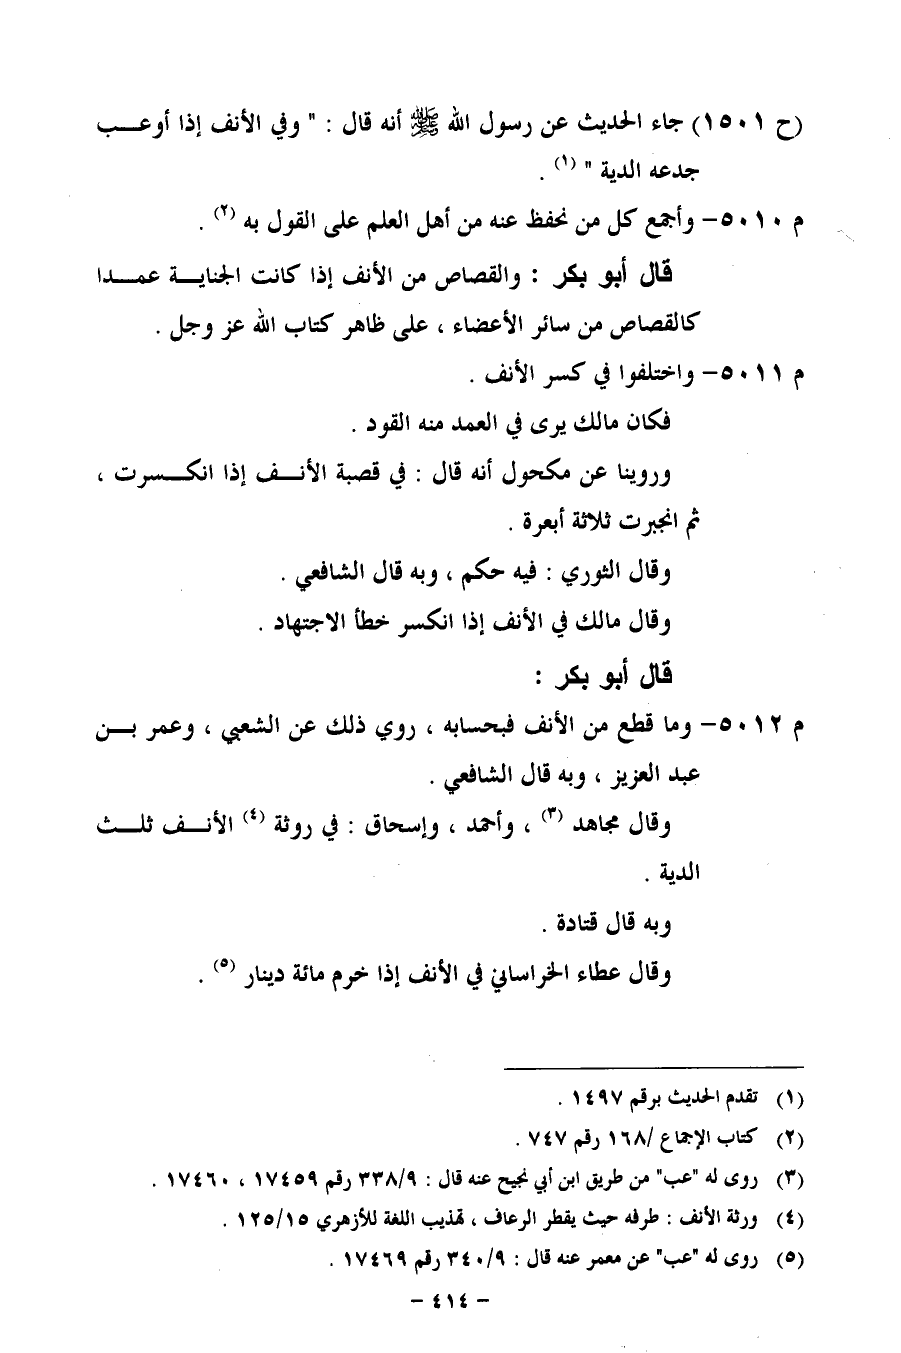 (ح ١٥٠١) جاء الحديث عن رسول الله ﷺ أنه قال : " وفي الأنف إذا أوعب
جدعه الدية " (١) .
م ٥٠١٠– وأجمع كل من نحفظ عنه من أهل العلم على القول به (٢) .
قال أبو بكر : والقصاص من الأنف إذا كانت الجناية عمدا
كالقصاص من سائر الأعضاء ، على ظاهر كتاب الله عز وجل .
م ٥٠١١– واختلفوا في كسر الأنف .
فكان مالك يرى في العمد منه القود .
وروينا عن مكحول أنه قال : في قصبة الأنف إذا انكسرت ،
ثم انجبرت ثلاثة أبعرة .
وقال الثوري : فيه حكم ، وبه قال الشافعي .
وقال مالك في الأنف إذا انكسر خطأ الاجتهاد .
قال أبو بكر :
م ٥٠١٢– وما قطع من الأنف فبحسابه ، روي ذلك عن الشعبي ، وعمر بن
عبد العزيز ، وبه قال الشافعي .
وقال مجاهد (٣) ، وأحمد ، وإسحاق : في روثة (٤) الأنف ثلث
الدية .
وبه قال قتادة .
وقال عطاء الخراساني في الأنف إذا خرم مائة دينار (٥) .
(١) تقدم الحديث برقم ١٤٩٧ .
(٢) كتاب الإجماع /١٦٨ رقم ٧٤٧ .
(٣) روى له "عب" من طريق ابن أبي نجيح عنه قال : ٣٣٨/٩ رقم ١٧٤٥٩ ، ١٧٤٦٠ .
(٤) ورثة الأنف : طرفه حيث يقطر الرعاف ، تهذيب اللغة للأزهري ١٢٥/١٥ .
(٥) روى له "عب" عن معمر عنه قال : ٣٤٠/٩ رقم ١٧٤٦٩ .
– ٤١٤ –